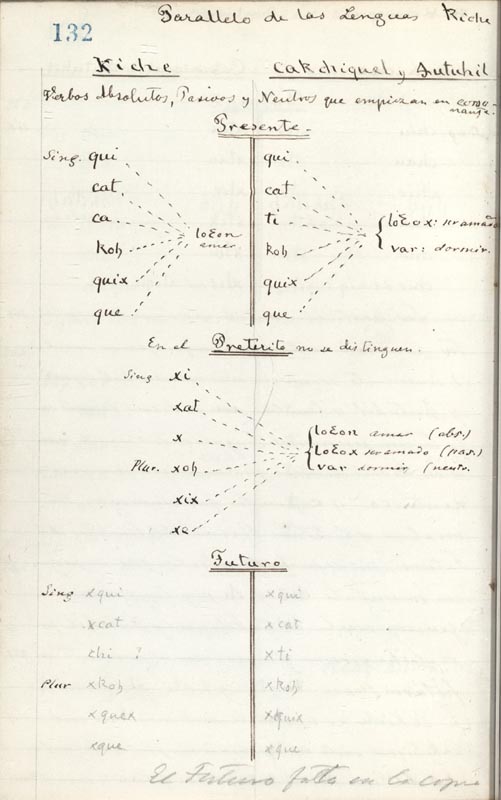 Parallelo de las Lenguas Kiche
132
Kiche Cakchiquel y Zutuhil
Verbos Absolutos, Pasivos y Neutros que empiezan en conso-
nante.
Presente.
Sing. qui qui
cat cat
ca ti
loƐon
amer
{loƐox: ser amado
koh koh
var: dormir.
quix quix
que que
En el Preterito no se distinguen.
Sing xi
xat
x
{loƐon amar (abs.)
Plur. xoh
loƐox ser amado (pas.)
var dormir (neutr.
xix
xe
Futuro
Sing xqui xqui
xcat xcat
chi ? xti
Plur xkoh xkoh
xquex xquix
xque xque
El Futuro falta en la copia